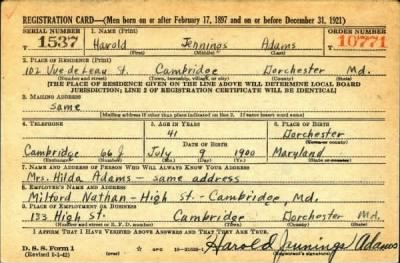 REGISTRATION CARD—(Men born on or after February 17, 1897 and on or before December 31, 1921)
SERIAL NUMBER 1. NAME (Print) ORDER NUMBER
T 1537 Harold Jennings Adams 10771
(First) (Middle) (Last)
2. PLACE OF RESIDENCE (Print)
102 Vue de Leau St. Cambridge Dorchester Md.
(Number and street) (Town, township, village, or city) (County) (State)
[THE PLACE OF RESIDENCE GIVEN ON THE LINE ABOVE WILL DETERMINE LOCAL BOARD
JURISDICTION; LINE 2 OF REGISTRATION CERTIFICATE WILL BE IDENTICAL]
3. MAILING ADDRESS
same
[Mailing address if other than place indicated on line 2. If same insert word same]
4. TELEPHONE 5. AGE IN YEARS 6. PLACE OF BIRTH
41 Dorchester
DATE OF BIRTH (Town or county)
Cambridge 66 J July 9 1900 Maryland
(Exchange) (Number) (Mo.) (Day) (Yr.) (State or country)
7. NAME AND ADDRESS OF PERSON WHO WILL ALWAYS KNOW YOUR ADDRESS
Mrs. Hilda Adams — same address
8. EMPLOYER'S NAME AND ADDRESS
Milford Nathan - High St. - Cambridge, Md.
9. PLACE OF EMPLOYMENT OR BUSINESS
133 High St. Cambridge Dorchester Md.
(Number and street or R. F. D. number) (Town) (County) (State)
I AFFIRM THAT I HAVE VERIFIED ABOVE ANSWERS AND THAT THEY ARE TRUE.
D. S. S. Form 1
(Revised 1-1-42) Harold Jennings Adams
(Registrant's signature)